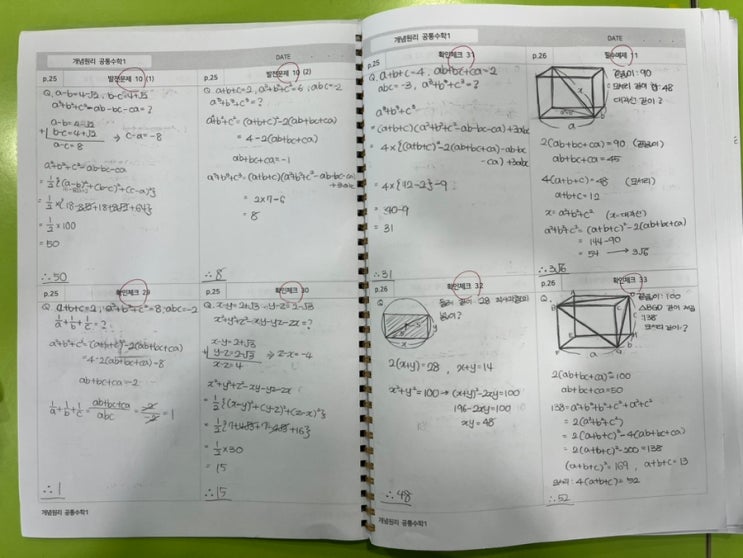 개념원리 공통수학1
DATE
p.25 발전문제 10 (1)
Q. a-b=4-√2, b-c=4+√2
a²+b²+c²-ab-bc-ca=?
a-b=4-√2
+) b-c=4+√2 ⇒ c-a=-8
a-c=8
a²+b²+c²-ab-bc-ca
=½{(a-b)²+(b-c)²+(c-a)²}
=½×100
=50
∴50
p.25 발전문제 10 (2)
Q. a+b+c=2, a²+b²+c²=6, abc=-2
a³+b³+c³=?
a²+b²+c²=(a+b+c)²-2(ab+bc+ca)
=4-2(ab+bc+ca)
ab+bc+ca=-1
a³+b³+c³=(a+b+c)(a²+b²+c²-ab-bc-ca)+3abc
2×7-6
=8
∴8
p.25 확인체크 29
Q. a+b+c=2, a²+b²+c²=8, abc=-2
1/a+1/b+1/c=?
a²+b²+c²=(a+b+c)²-2(ab+bc+ca)
=4-2(ab+bc+ca)=8
ab+bc+ca=-2
1/a+1/b+1/c=(ab+bc+ca)/abc=-2/-2=1
∴1
p.25 확인체크 30
Q. x-y=2+√3, y-z=2-√3
x²+y²+z²-xy-yz-zx=?
x-y=2+√3
+) y-z=2-√3 ⇒ z-x=-4
x-z=4
x²+y²+z²-xy-yz-zx
=½{(x-y)²+(y-z)²+(z-x)²}
=½{7+4√3+7-4√3+16}
=½×30
=15
∴15
개념원리 공통수학1
개념원리 공통수학1
DATE
p.25 확인체크 31
Q. a+b+c=4, ab+bc+ca=2
abc=-3, a³+b³+c³=?
a³+b³+c³
=(a+b+c)(a²+b²+c²-ab-bc-ca)+3abc
=4×{(a+b+c)²-2(ab+bc+ca)-ab-bc-ca}+3abc
-9
=40-9
=31
∴31
p.26 필수예제 11
겉넓이: 90
모서리 길이 합: 48
대각선 길이?
x
a
b
2(ab+bc+ca)=90 (겉넓이)
ab+bc+ca=45
4(a+b+c)=48 (모서리)
a+b+c=12
x=a²+b²+c² (x=대각선)
a²+b²+c²=(a+b+c)²-2(ab+bc+ca)
=144-90
=54 → 3√6
∴3√6
p.26 확인체크 32
Q.
둘레 길이: 28
넓이?
x
2(x+y)=28, x+y=14
x²+y²=100→(x+y)²-2xy=100
196-2xy=100
xy=48
∴48
p.26 확인체크 33
Q.
겉넓이: 100
138
모서리 길이?
a
2(ab+bc+ca)=100
ab+bc+ca=50
138=a²+b²+b²+c²+a²+c²
=2(a²+b²+c²)
=2(a+b+c)²-4(ab+bc+ca)
=2(a+b+c)²-200=138
(a+b+c)²=169, a+b+c=13
모서리: 4(a+b+c)=52
∴52
개념원리 공통수학1